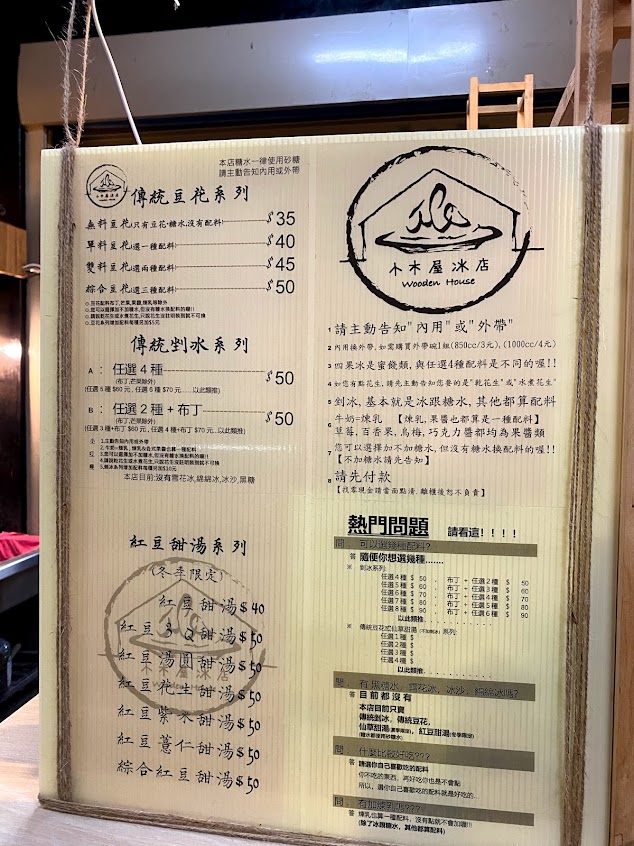 本店糖水一律使用砂糖
請主動告知內用或外帶
傳統豆花系列
無料豆花只有豆花、糖水,沒有配料 $35
單料豆花選一種配料 $40
雙料豆花選兩種配料 $45
綜合豆花選三種配料 $50
傳統剉冰系列
A： 任選4種 $50
(布丁,芒果除外)
(任選 5 種 $60 元 , 任選 6 種 $70 元......以此類推)
B： 任選2種＋布丁 $50
(布丁,芒果除外)
(任選3種+布丁 $60 元 , 任選4種+布丁 $70 元...以此類推)
1.主動告知內用或外帶
本店目前:沒有雪花冰,綿綿冰,冰沙,黑糖
紅豆甜湯系列
(冬季限定)
紅豆甜湯$40
紅豆QQ甜湯$50
紅豆湯圓甜湯$50
紅豆花生甜湯$50
紅豆紫米甜湯$50
紅豆薏仁甜湯$50
綜合紅豆甜湯$50
卜木屋冰店
Wooden House
1 請主動告知"內用"或"外帶"
2 內用換外帶,如需購買外帶碗1組(850cc/3元),(1000cc/4元)
3 四果冰是蜜餞類,與任選4種配料是不同的喔!!
4 如您有點花生,請先主動告知您要的是"乾花生"或"水煮花生"
5 剉冰,基本就是冰跟糖水,其他都算配料
6 牛奶=煉乳 【煉乳,果醬也都算是一種配料】
草莓,百香果,烏梅,巧克力醬都均為果醬類
7 您可以選擇加不加糖水,但沒有糖水換配料的喔!!
【不加糖水請先告知】
8 請先付款
【找零現金請當面點清.離櫃後恕不負責】
熱門問題 請看這！！！！
問. 可以選幾種配料?
答 隨便你想選幾種.......
※ 剉冰系列:
任選 4 種 $ 50 . 布丁 + 任選 2 種 $ 50
任選 5 種 $ 60 . 布丁 + 任選 3 種 $ 60
任選 6 種 $ 70 . 布丁 + 任選 4 種 $ 70
任選 7 種 $ 80 . 布丁 + 任選 5 種 $ 80
任選 8 種 $ 90 . 布丁 + 任選 6 種 $ 90
以此類推. . . . . . . . . . .
※ 傳統豆花或仙草甜湯 系列:
任選 1 種 $
任選 2 種 $
任選 3 種 $
任選 4 種 $
以此類推. . . . . . . . . . .
問. 有 黑糖水, 雪花冰, 冰沙, 綿綿冰嗎?
答 目 前 都 沒 有
本店目前只賣
傳統剉冰, 傳統豆花,
仙草甜湯(夏季限定), 紅豆甜湯(冬季限定)
(糖水都使用砂糖水)
問. 什麼比較好吃???
答 請選你自己喜歡吃的配料
你不吃的東西, 再好吃你也是不會點
所以, 選你自己喜歡吃的配料就是好吃的...
問. 有加煉乳嗎???
答 煉乳也算一種配料, 沒有點就不會加喔!!
(除了冰跟糖水, 其他都算配料)